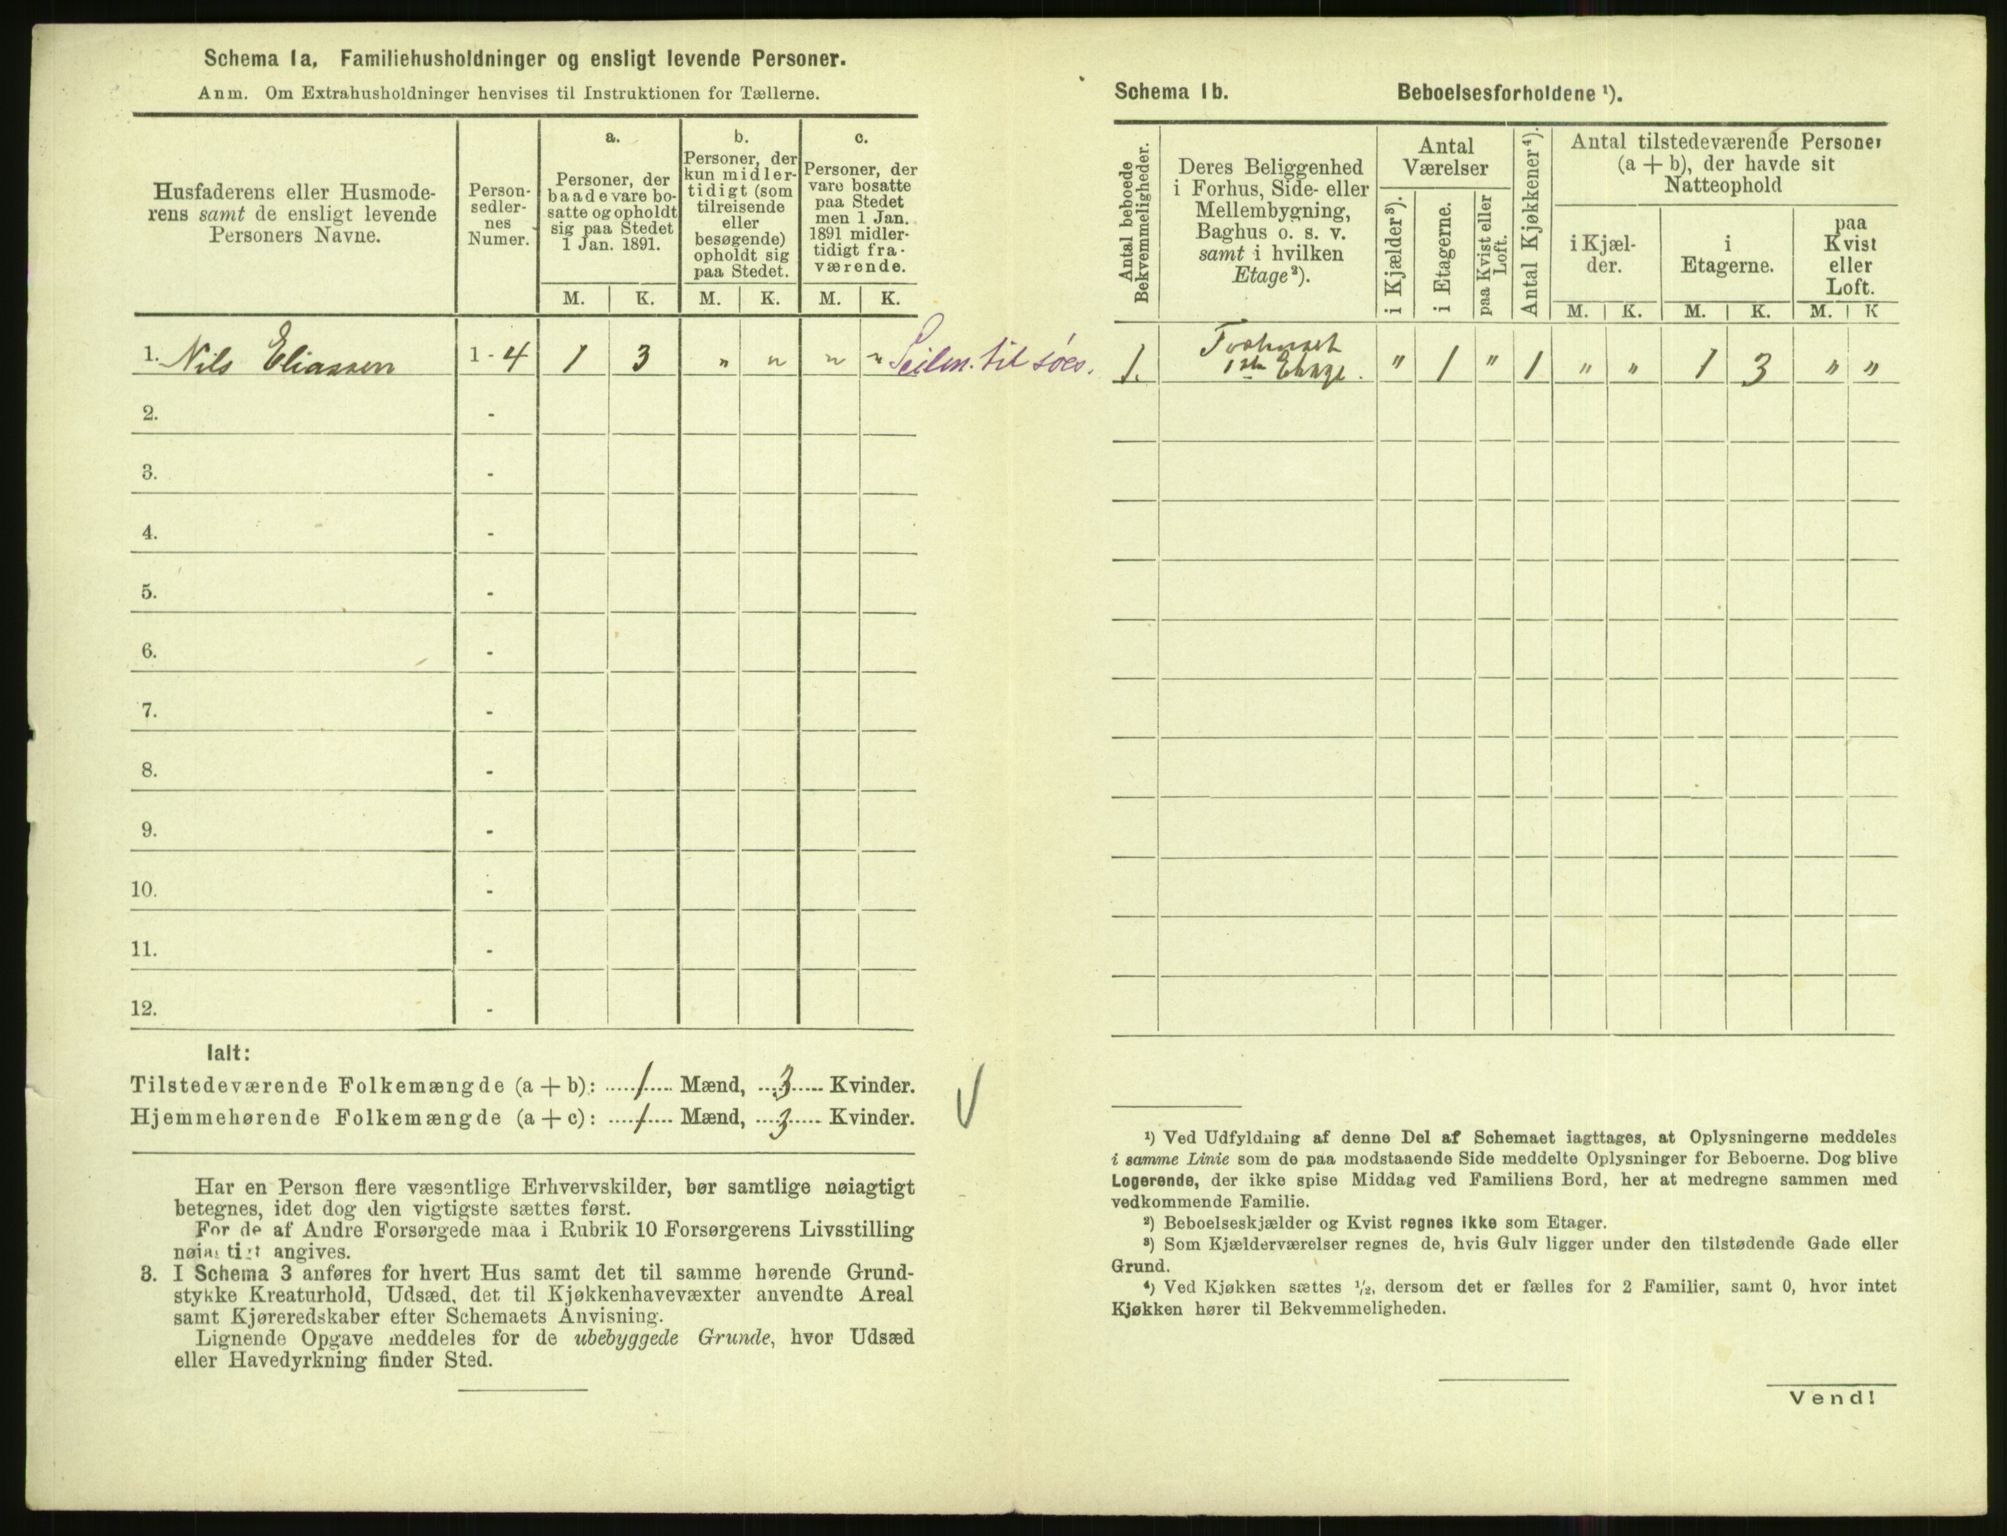 Schema 1a, Familiehusholdninger og ensligt levende Personer.
Anm. Om Extrahusholdninger henvises til Instruktionen for Tællerne.
Husfaderens eller Husmoderens samt de ensligt levende Personers Navne.
Personsedlernes Numer.
a. Personer, der baade vare bosatte og opholdt sig paa Stedet 1 Jan. 1891.
b. Personer, der kun midlertidigt (som tilreisende eller besøgende) opholdt sig paa Stedet.
c. Personer, der vare bosatte paa Stedet men 1 Jan. 1891 midlertidigt fraværende.
M. K. M. K. M. K.
1. Nils Eliassen 1-4 1 3 " " " " Seilm. til søes.
2. -
3. -
4. -
5. -
6. -
7. -
8. -
9. -
10. -
11. -
12. -
Ialt:
Tilstedeværende Folkemængde (a+b): 1 Mænd, 3 Kvinder.
Hjemmehørende Folkemængde (a+c): 1 Mænd, 3 Kvinder.
Har en Person flere væsentlige Erhvervskilder, bør samtlige nøiagtigt
betegnes, idet dog den vigtigste sættes først.
For de af Andre Forsørgede maa i Rubrik 10 Forsørgerens Livsstilling
nøiagtigt angives.
3. I Schema 3 anføres for hvert Hus samt det til samme hørende Grund-
stykke Kreaturhold, Udsæd, det til Kjøkkenhavevæxter anvendte Areal
samt Kjøreredskaber efter Schemaets Anvisning.
Lignende Opgave meddeles for de ubebyggede Grunde, hvor Udsæd
eller Havedyrkning finder Sted.
Schema 1b. Beboelsesforholdene ¹).
Antal beboede Bekvemmeligheder.
Deres Beliggenhed i Forhus, Side- eller Mellembygning, Baghus o. s. v. samt i hvilken Etage²).
Antal Værelser
i Kjælder³).
i Etagerne.
paa Kvist eller Loft.
Antal Kjøkkener⁴).
Antal tilstedeværende Personer (a+b), der havde sit Natteophold
i Kjælder.
i Etagerne.
paa Kvist eller Loft.
M. K. M. K. M. K
1. 1ste Etage. " 1 " 1 " " 1 3 " "
¹) Ved Udfyldning af denne Del af Schemaet iagttages, at Oplysningerne meddeles
i samme Linie som de paa modstaaende Side meddelte Oplysninger for Beboerne. Dog blive
Logerende, der ikke spise Middag ved Familiens Bord, her at medregne sammen med
vedkommende Familie.
²) Beboelseskjælder og Kvist regnes ikke som Etager.
³) Som Kjælderværelser regnes de, hvis Gulv ligger under den tilstødende Gade eller
Grund.
⁴) Ved Kjøkken sættes ½, dersom det er fælles for 2 Familier, samt 0, hvor intet
Kjøkken hører til Bekvemmeligheden.
Vend!